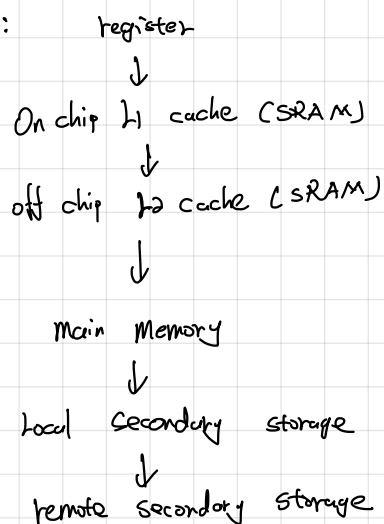 :
register
↓
On chip L1 cache (SRAM)
↓
off chip L2 cache (SRAM)
↓
Main Memory
↓
Local secondary storage
↓
remote secondary storage